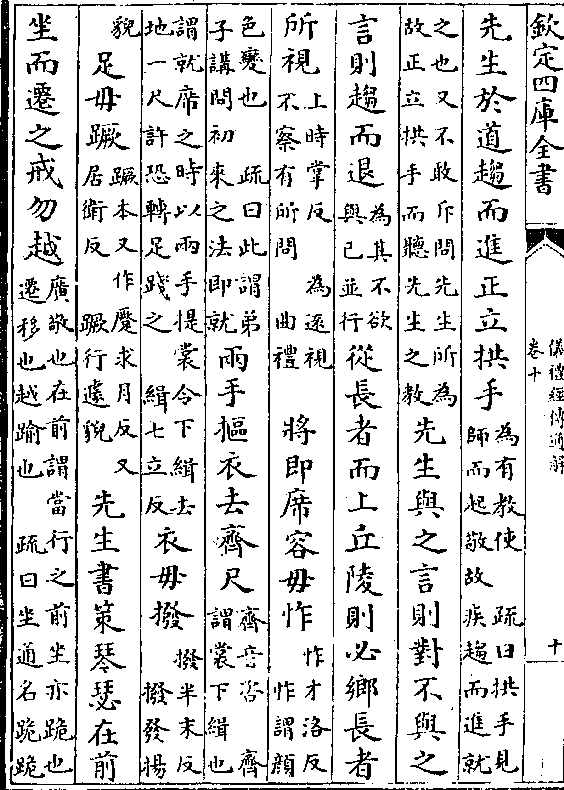 欽定四庫全書
儀禮經傳通解
卷十
十
先生於道趨而進正立拱手為有教使 疏曰拱手見師而起敬故疾趨而進就
之也又不敢斥問先生所為故正立拱手而聽先生之教先生與之言則對不與之
言則趨而退為其不欲與已並行從長者而上丘陵則必鄉長者
所視上時掌反 為逺視不察有所問 曲禮 將即席容毋怍怍才洛反怍謂顔
色變也 疏曰此謂弟子講問初來之法即就兩手摳衣去齊尺齊音咨 齊謂裳下緝也
謂就席之時以兩手提裳令下緝去地一尺許恐轉足踐之 緝七立反衣毋撥撥半末反撥發揚
貌足毋蹶蹶本又作蹷求月反又居衛反 蹶行遽貌先生書策琴瑟在前
坐而遷之戒勿越廣敬也在前謂當行之前坐亦跪也遷移也越踰也 疏曰坐通名跪跪